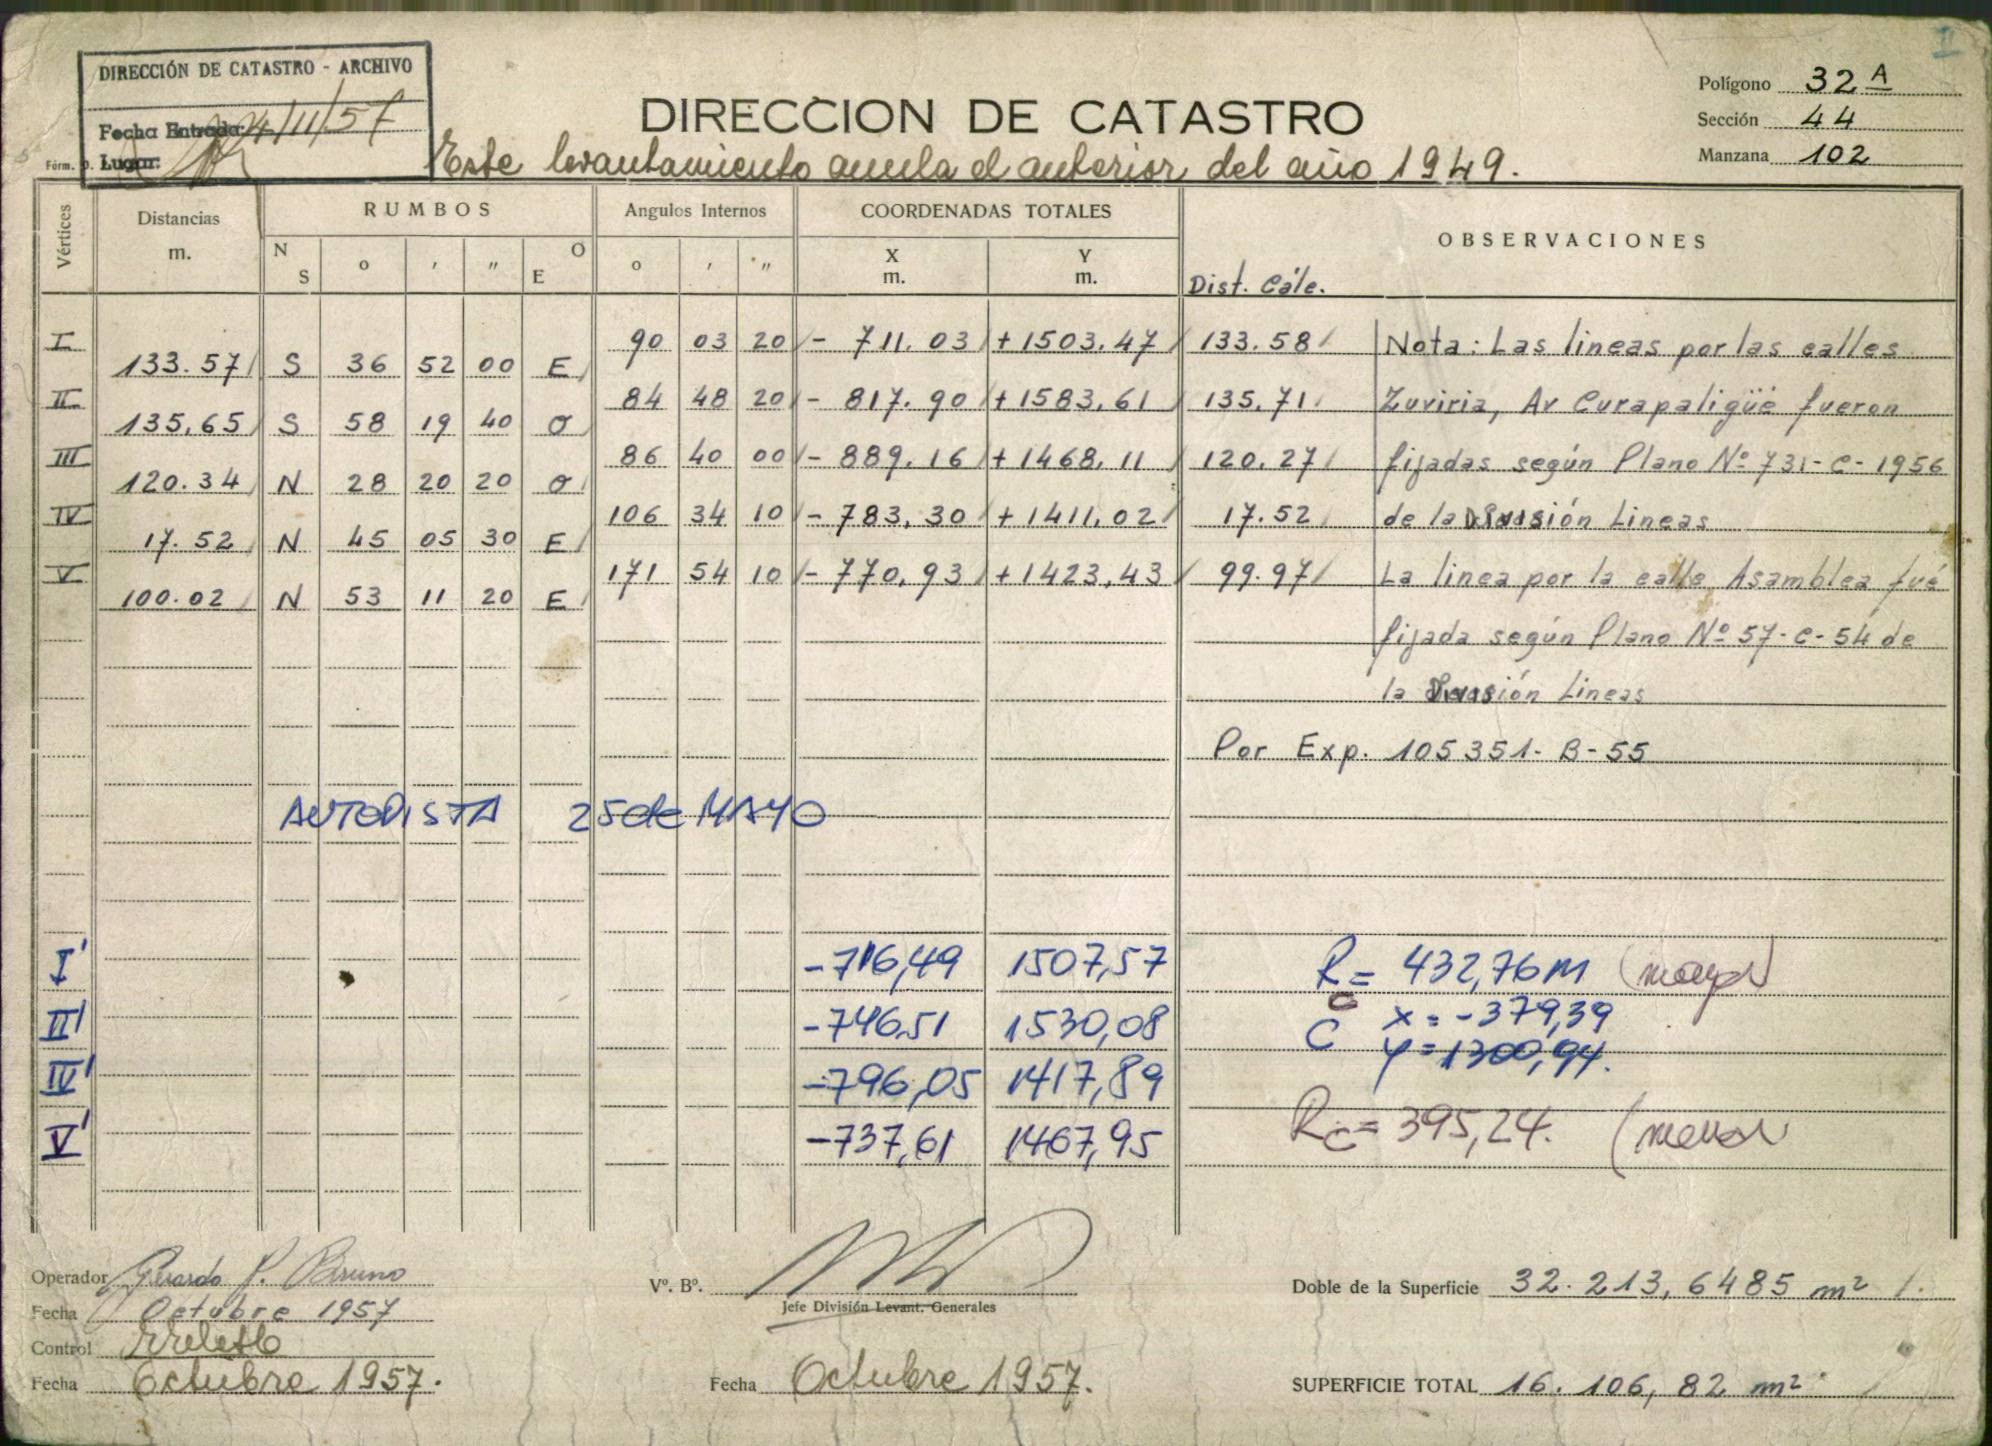 II
DIRECCIÓN DE CATASTRO - ARCHIVO
Fecha Entrada: 4/11/57
Lugar:
Polígono 32 A
Sección 44
Manzana 102
DIRECCION DE CATASTRO
Este levantamiento anula el anterior del año 1949.
Vértices Distancias m. RUMBOS Angulos Internos COORDENADAS TOTALES OBSERVACIONES
N S o ' " O E o ' " X m. Y m. Dist. Cálc.
I 90 03 20 - 711.03 +1503.47 133.58 Nota: Las lineas por las calles
133.57 S 36 52 00 E
II 84 48 20 - 817.90 +1583,61 135,71 Zuviria, Av Curapaligüe fueron
135,65 S 58 19 40 O
III 86 40 00 - 889.16 +1468.11 120.27 fijadas según Plano Nº 731-C-1956
120.34 N 28 20 20 O
IV 106 34 10 - 783,30 +1411,02 17.52 de la División Lineas
17.52 N 45 05 30 E
V 171 54 10 - 770,93 +1423,43 99.97 La linea por la calle Asamblea fué
100.02 N 53 11 20 E
fijada según Plano Nº 57-C-54 de
la División Lineas
Por Exp. 105351-B-55
AUTOPISTA 25 de MAYO
I' -716,49 1507,57 R = 432,76m (mayor)
II' -746,51 1530,08 C x = -379,39
y = 1300,94.
IV' -796,05 1417,89
V' -737,61 1467,95 Rc = 395,24. (menor
Operador Gerardo P. Bruno
Fecha Octubre 1957
Control
Fecha Octubre 1957.
Vº. Bº.
Jefe División Levant. Generales
Fecha Octubre 1957.
Doble de la Superficie 32.213,6485 m²
SUPERFICIE TOTAL 16.106,82 m²